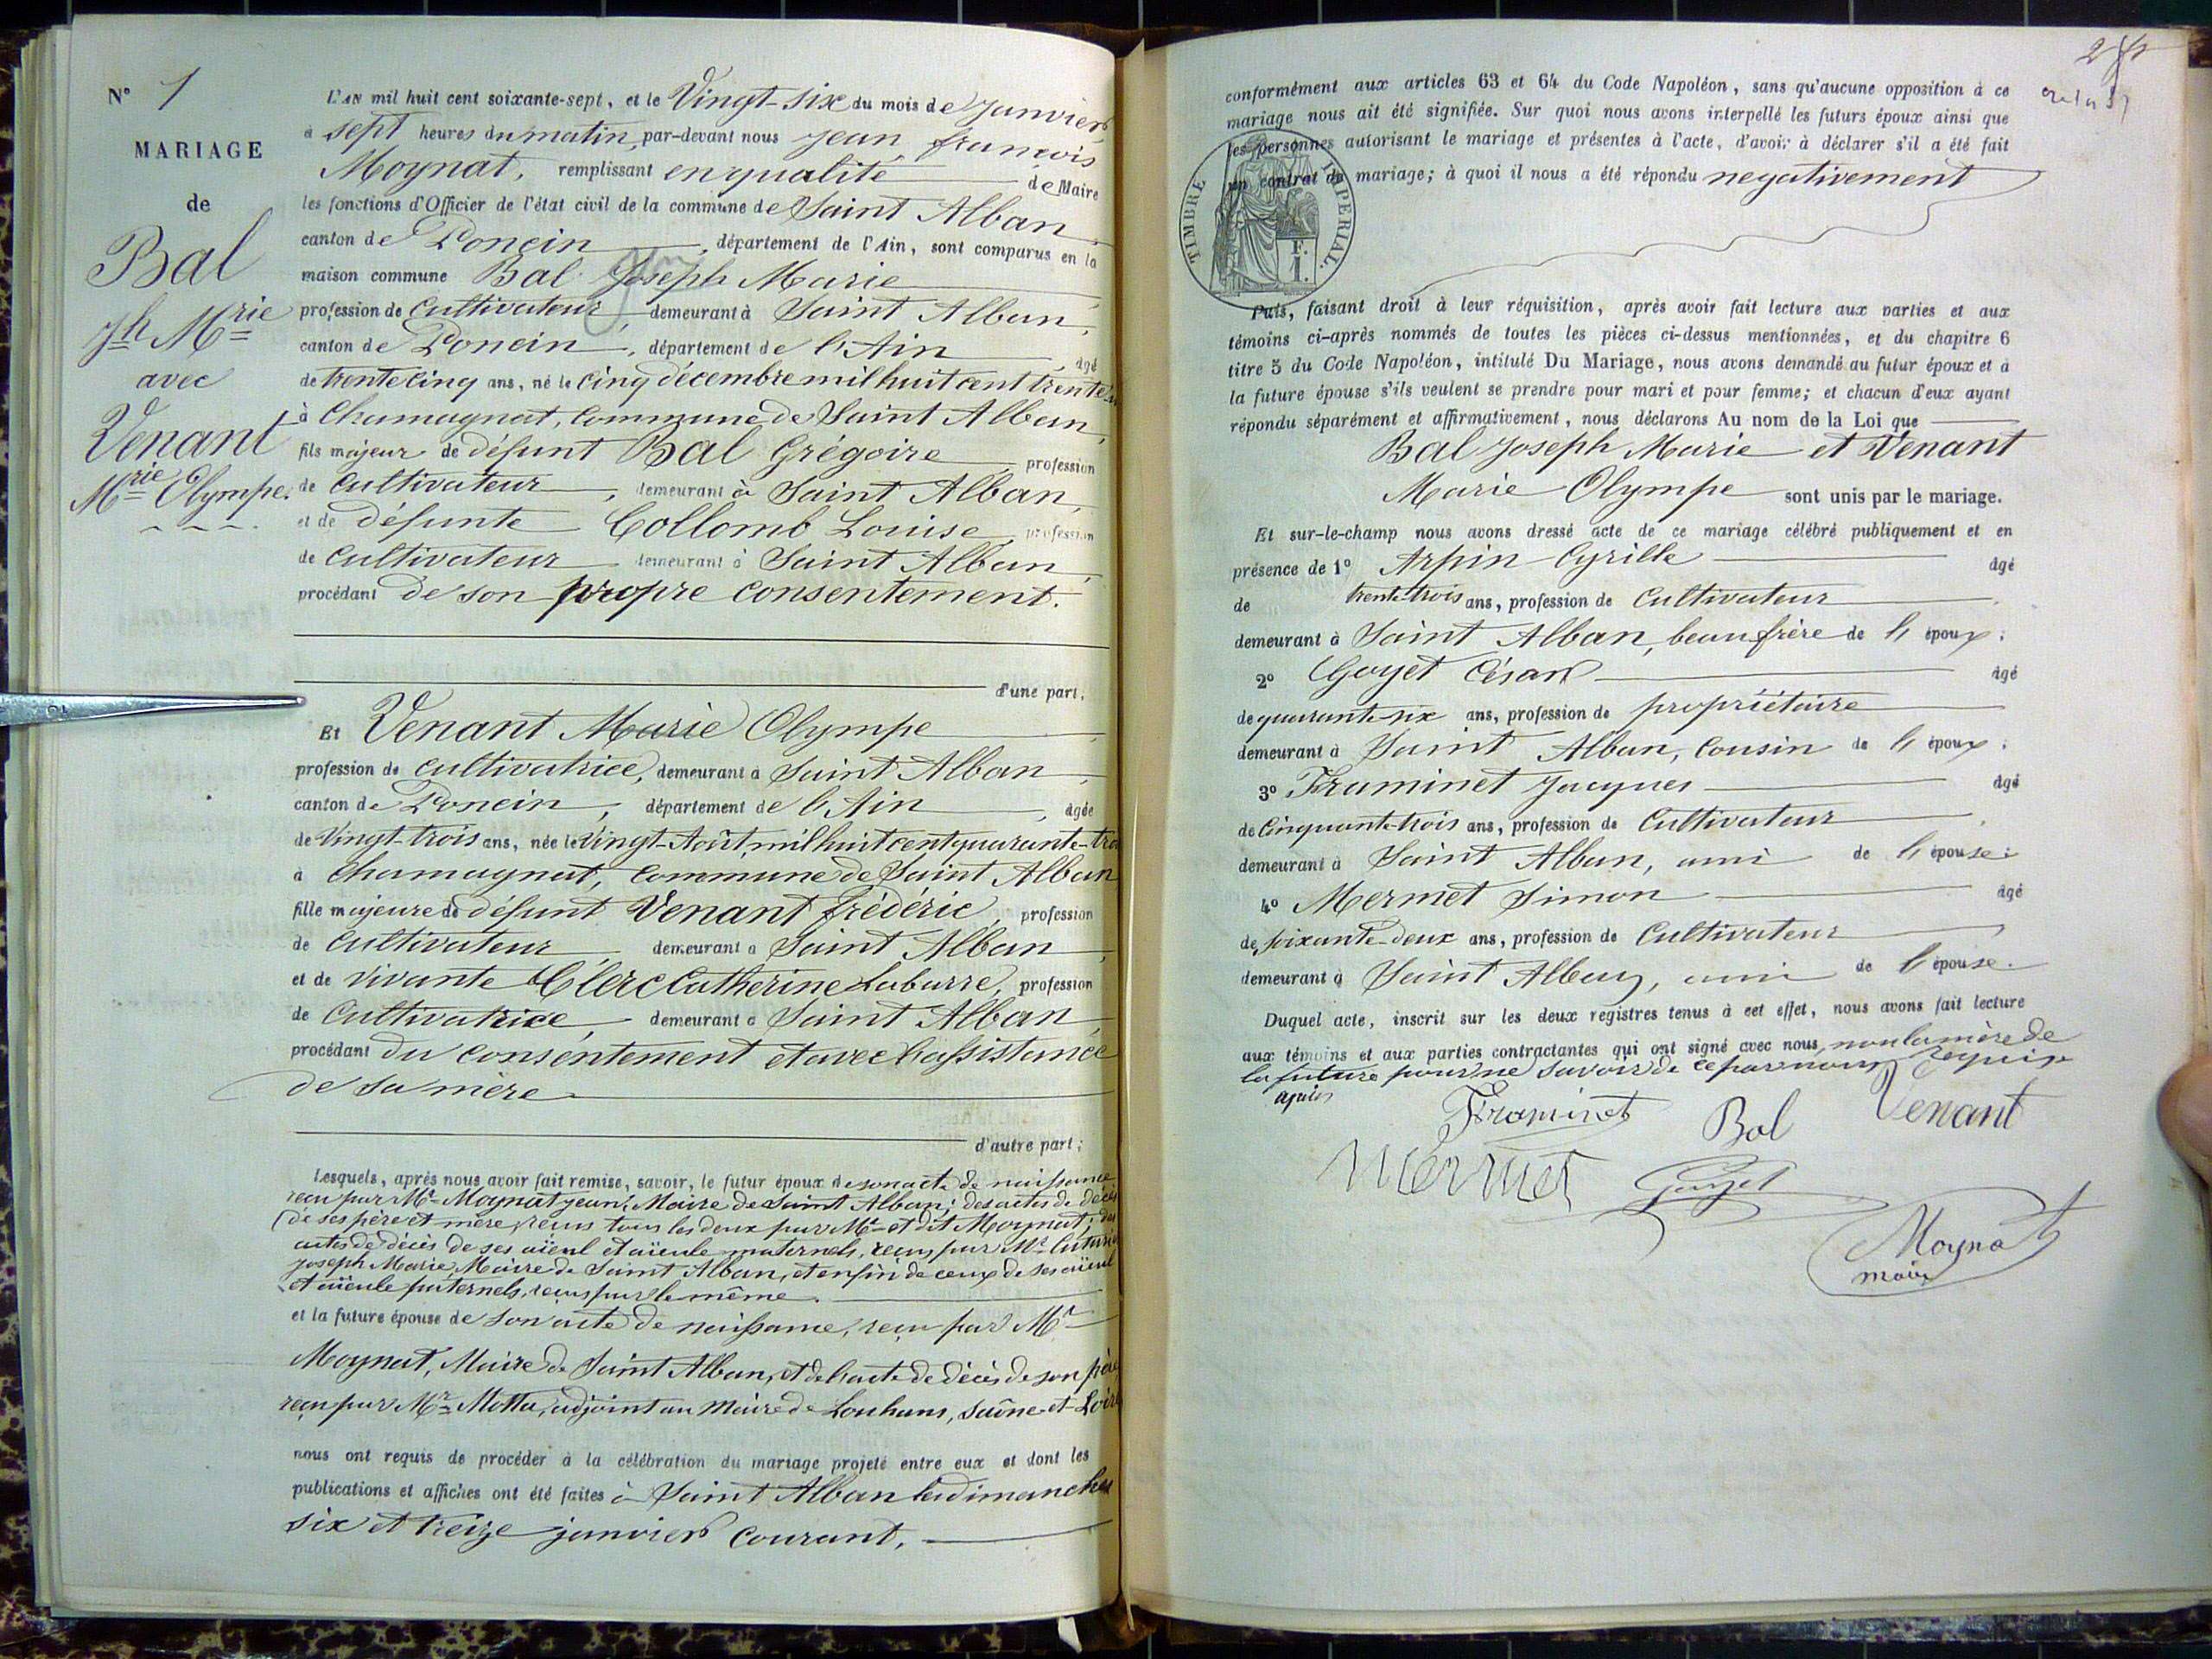 N° 1
MARIAGE
de
Bal
Jh Mrie
avec
Venant
Mrie Olympe.
L'AN mil huit cent soixante-sept, et le Vingt-six du mois de Janvier
à sept heures du matin, par-devant nous Jean françois
Moynat, remplissant en qualité de Maire
les fonctions d'Officier de l'état civil de la commune de Saint Alban
canton de Poncin, département de l'Ain, sont comparus en la
maison commune Bal Joseph Marie
profession de Cultivateur, demeurant à Saint Alban,
canton de Poncin, département de l'Ain âgé
de trente cinq ans, né le cinq décembre mil huit cent trente
à Chamagnat, Commune de Saint Alban,
fils majeur de défunt Bal Grégoire profession
de Cultivateur, demeurant à Saint Alban,
et de défunte Collomb Louise, profession
de Cultivateur demeurant à Saint Alban,
procédant de son propre consentement.
d'une part,
Et Venant Marie Olympe
profession de cultivatrice, demeurant à Saint Alban,
canton de Poncin, département de l'Ain, âgée
de Vingt-trois ans, née le Vingt-Août, mil huit cent quarante-trois
à Chamagnat, Commune de Saint Alban
fille majeure de défunt Venant frédéric profession
de Cultivateur, demeurant à Saint Alban,
et de vivante Clerc Catherine Labarre, profession
de Cultivatrice, demeurant à Saint Alban,
procédant du consentement et avec l'assistance
de sa mère
d'autre part;
Lesquels, après nous avoir fait remise, savoir, le futur époux de son acte de naissance
reçu par Mr Moynat jean, Maire de Saint Alban; des actes de décès
de ses père et mère, reçus tous les deux par Mr et dit Moynat; des
actes de décès de ses aïeul et aïeule maternels, reçus par Mr
Joseph Marie, Maire de Saint Alban, et enfin de ceux de ses aïeul
et aïeule paternels, reçus par le même.
et la future épouse de son acte de naissance, reçu par Mr
Moynat, Maire de Saint Alban, et de l'acte de décès de son père
reçu par Mr Motta, adjoint au Maire de Louhans, Saône-et-Loire
nous ont requis de procéder à la célébration du mariage projeté entre eux et dont les
publications et affiches ont été faites à Saint Alban les dimanches
six et treize janvier courant.
conformément aux articles 63 et 64 du Code Napoléon, sans qu'aucune opposition à ce
mariage nous ait été signifiée. Sur quoi nous avons interpellé les futurs époux ainsi que
les personnes autorisant le mariage et présentes à l'acte, d'avoir à déclarer s'il a été fait
un contrat de mariage; à quoi il nous a été répondu negativement
TIMBRE IMPERIAL.
F.
1.
Puis, faisant droit à leur réquisition, après avoir fait lecture aux parties et aux
témoins ci-après nommés de toutes les pièces ci-dessus mentionnées, et du chapitre 6
titre 5 du Code Napoléon, intitulé Du Mariage, nous avons demandé au futur époux et à
la future épouse s'ils veulent se prendre pour mari et pour femme; et chacun d'eux ayant
répondu séparément et affirmativement, nous déclarons Au nom de la Loi que
Bal Joseph Marie et Venant
Marie Olympe sont unis par le mariage.
Et sur-le-champ nous avons dressé acte de ce mariage célébré publiquement et en
présence de 1° Arpin Cyrille âgé
de trente-trois ans, profession de Cultivateur
demeurant à Saint Alban, beau frère de l'époux;
2° Goyet César âgé
de quarante-six ans, profession de propriétaire
demeurant à Saint Alban, Cousin de l'époux;
3° Framinet Jacques âgé
de Cinquante-trois ans, profession de Cultivateur
demeurant à Saint Alban, ami de l'épouse;
4° Mermet Simon âgé
de soixante-deux ans, profession de Cultivateur
demeurant à Saint Alban, ami de l'épouse.
Duquel acte, inscrit sur les deux registres tenus à cet effet, nous avons fait lecture
aux témoins et aux parties contractantes qui ont signé avec nous, non la mère de
la future pour ne savoir de ce par nous requise
Framinet Bal Venant
Mermet Goyet
Moynat
maire